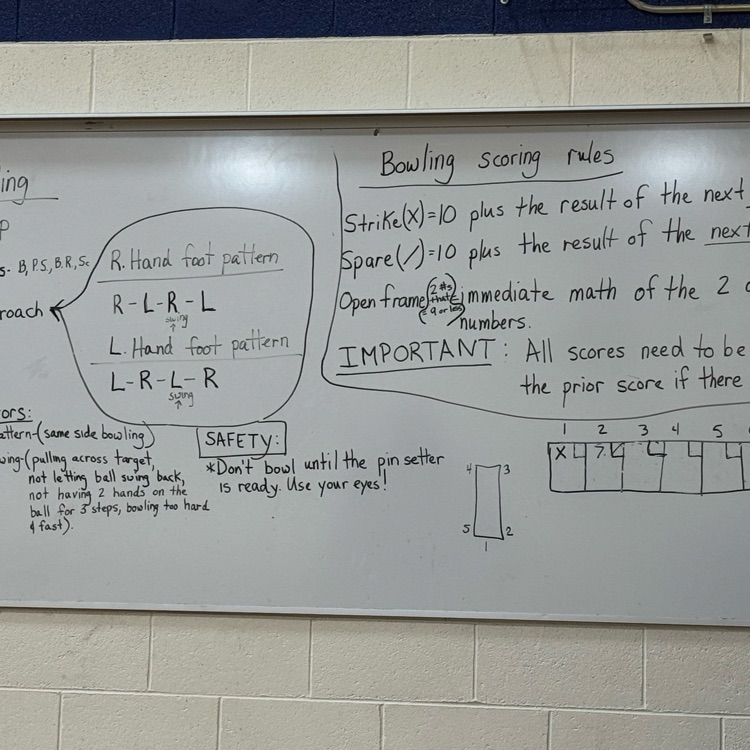 ing
P
s- B, P.S, B.R, Sc
roach
R. Hand foot pattern
R-L-R-L
swing
↑
L. Hand foot pattern
L-R-L-R
swing
↑
ors:
attern-(same side bowling)
wing-(pulling across target,
not letting ball swing back,
not having 2 hands on the
ball for 3 steps, bowling too hard
& fast).
SAFETY:
*Don't bowl until the pin setter
is ready. Use your eyes!
Bowling scoring rules
Strike(X)=10 plus the result of the next
Spare(/)=10 plus the result of the next
Open frame (2 #s that = 9 or less) = immediate math of the 2
numbers.
IMPORTANT: All scores need to be
the prior score if there
4 3
5 2
1
1 2 3 4 5
X 7 /